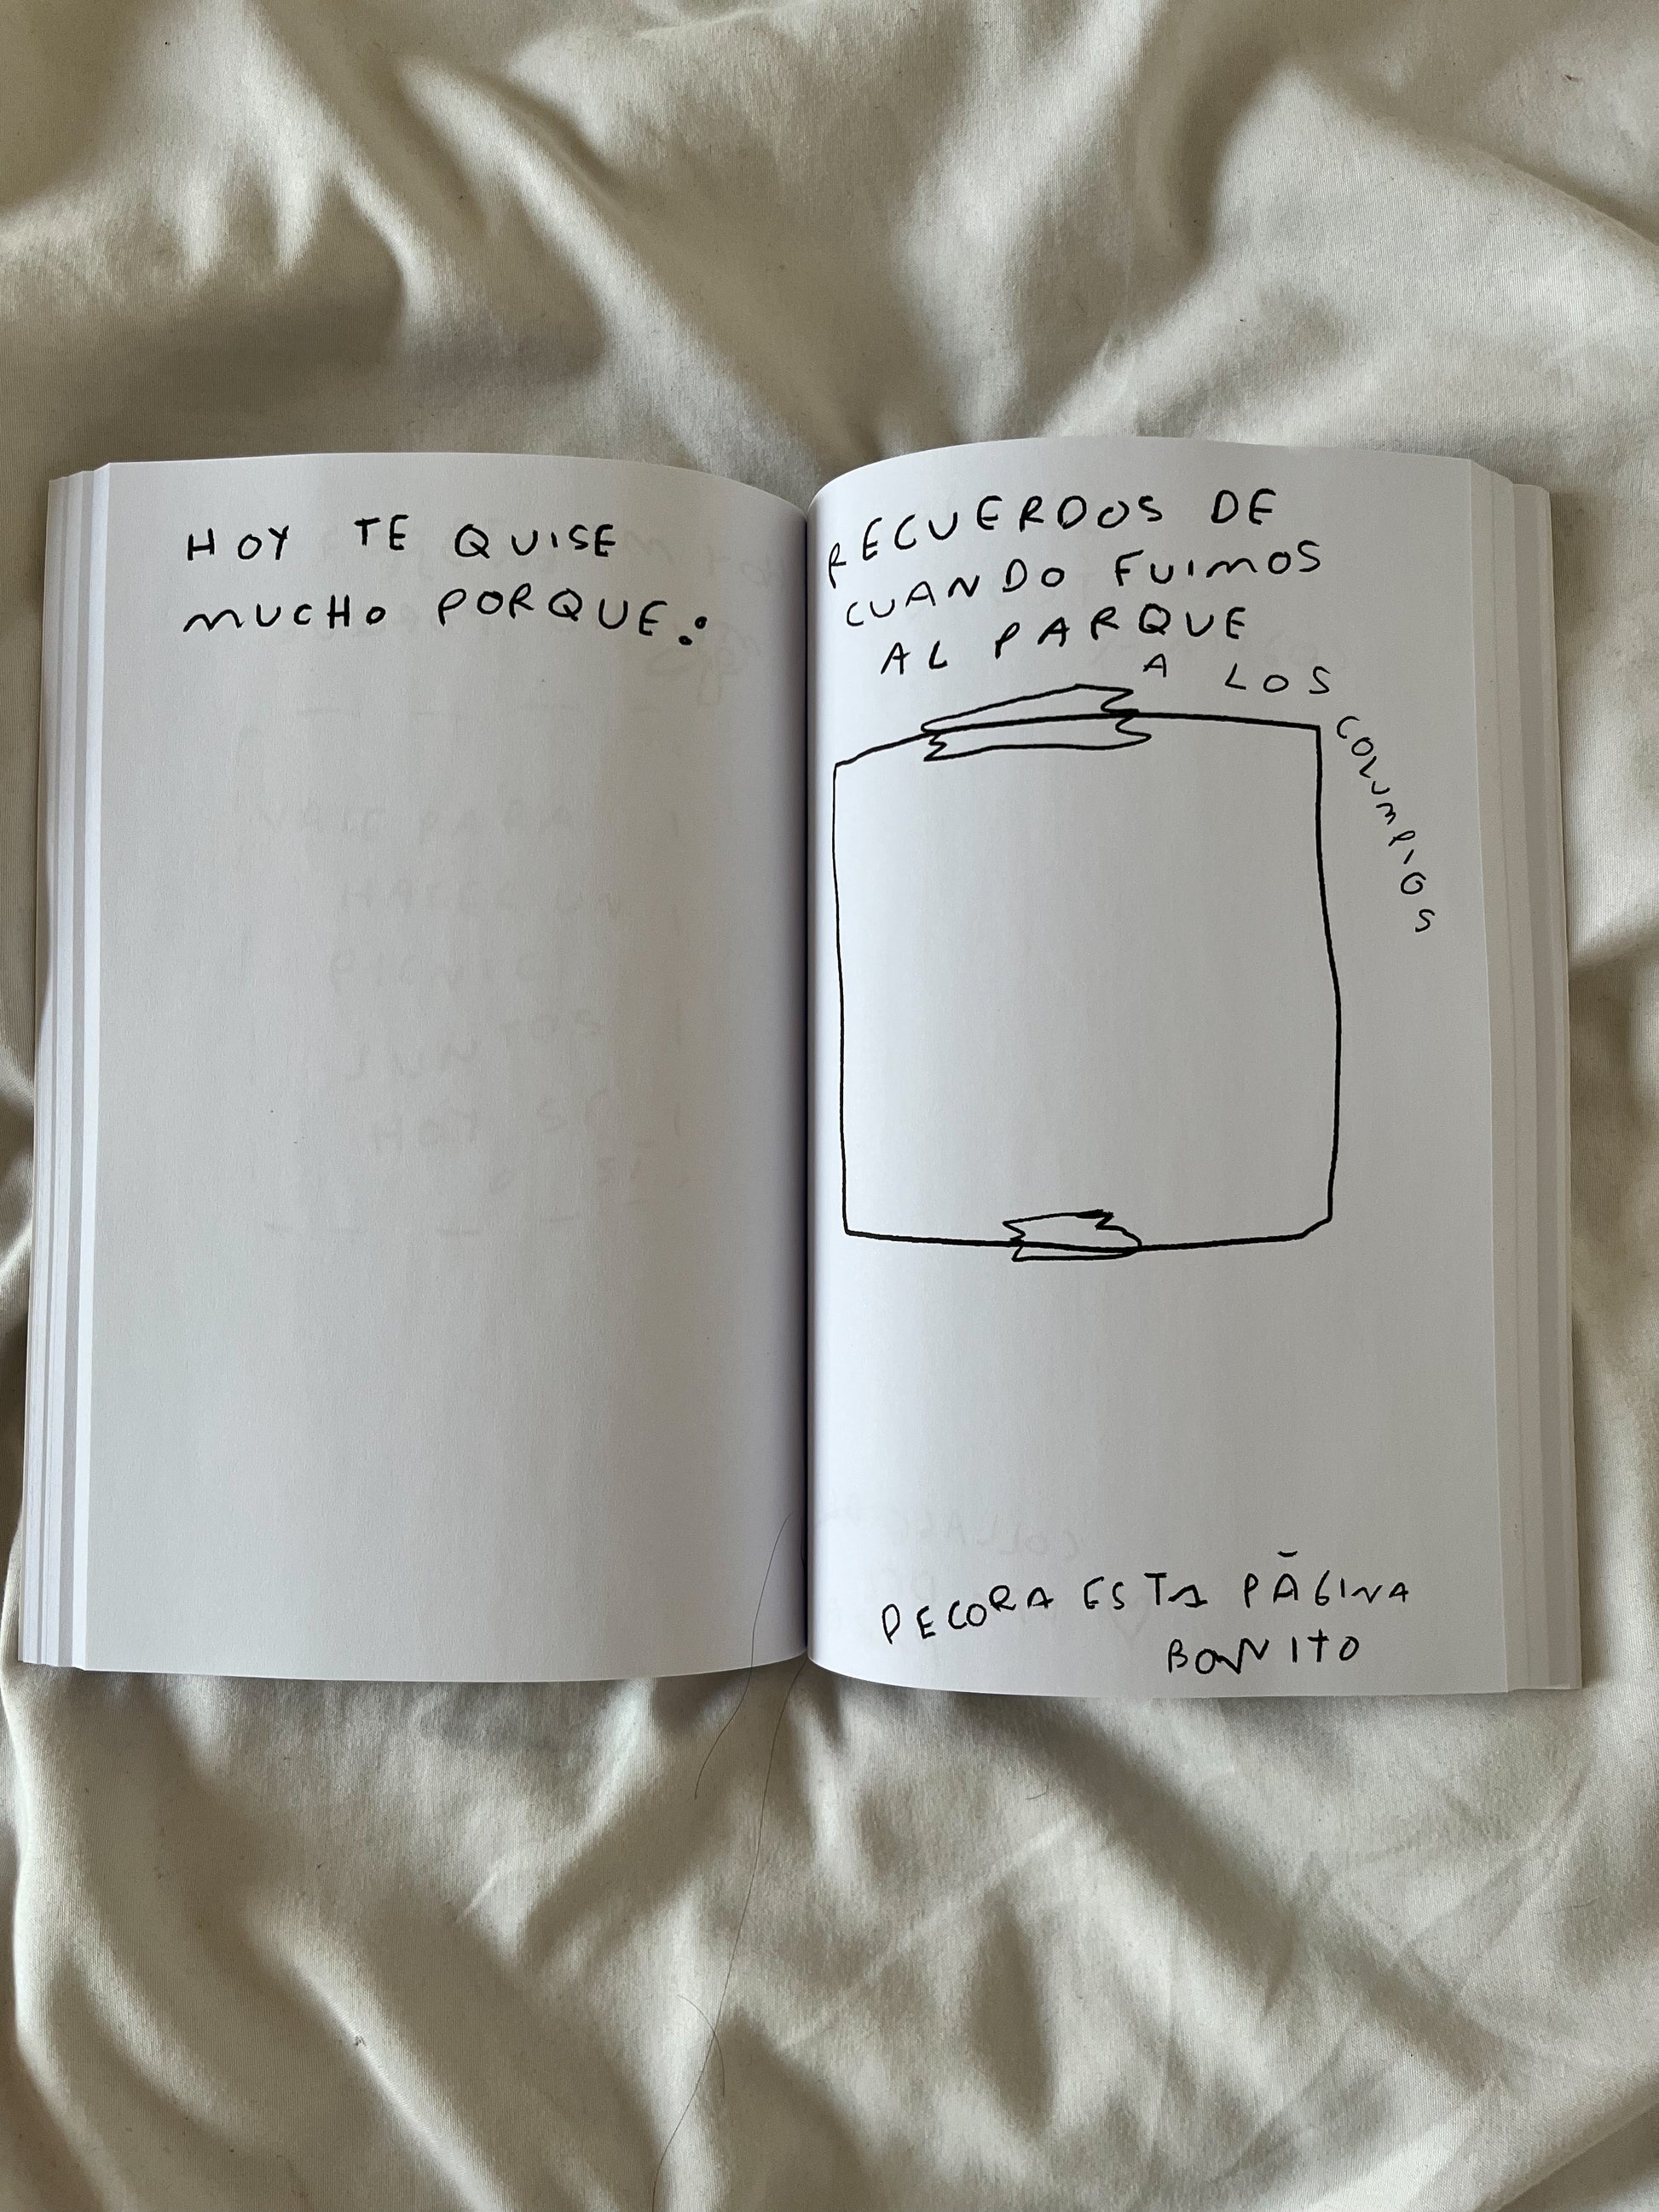 HOY TE QUISE
MUCHO PORQUE:
RECUERDOS DE
CUANDO FUIMOS
AL PARQUE
A LOS
COLUMPIOS
DECORA ESTA PÁGINA
BONITO